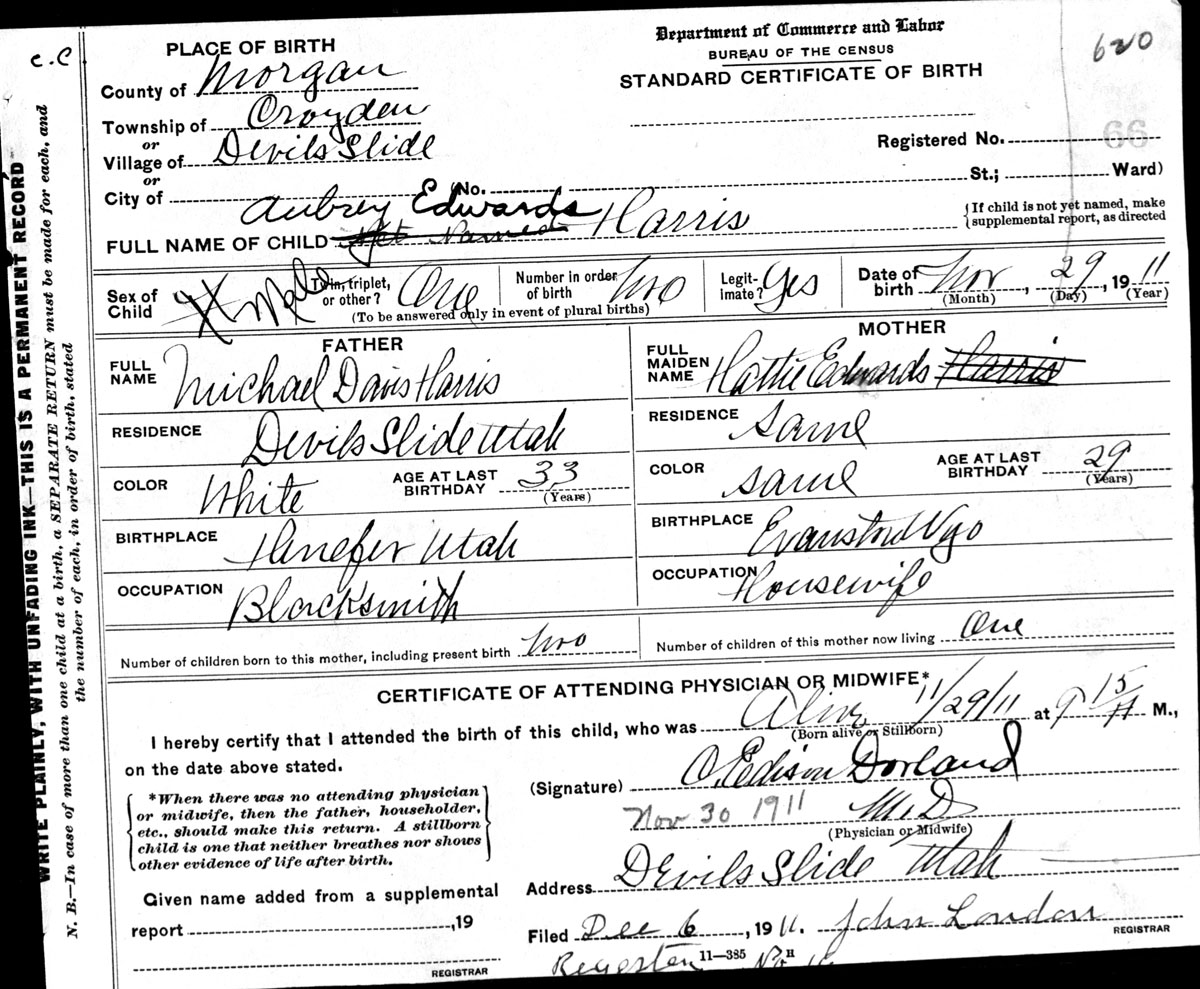 c.c
620
Department of Commerce and Labor
BUREAU OF THE CENSUS
STANDARD CERTIFICATE OF BIRTH
PLACE OF BIRTH
County of Morgan
Township of Croyden
or
Village of Devils Slide
or
City of
Registered No. 66
(No. St.; Ward)
FULL NAME OF CHILD Aubrey Edwards Harris
Not Named
{If child is not yet named, make
supplemental report, as directed
Sex of Child Male
Twin, triplet, or other? One
Number in order of birth two
(To be answered only in event of plural births)
Legitimate? Yes
Date of birth Nov, 29, 1911
(Month) (Day) (Year)
FATHER
FULL NAME Michael Davis Harris
RESIDENCE Devils Slide Utah
COLOR White
AGE AT LAST BIRTHDAY 33
(Years)
BIRTHPLACE Henefer Utah
OCCUPATION Blacksmith
MOTHER
FULL MAIDEN NAME Hattie Edwards Harris
RESIDENCE same
COLOR same
AGE AT LAST BIRTHDAY 29
(Years)
BIRTHPLACE Evanston Wyo
OCCUPATION Housewife
Number of children born to this mother, including present birth two
Number of children of this mother now living One
CERTIFICATE OF ATTENDING PHYSICIAN OR MIDWIFE*
I hereby certify that I attended the birth of this child, who was Alive 11/29/11 at 9 15 A M.,
(Born alive or Stillborn)
on the date above stated.
(Signature) O. Edison Dorland
Nov 30 1911 M.D
(Physician or Midwife)
{*When there was no attending physician
or midwife, then the father, householder,
etc., should make this return. A stillborn
child is one that neither breathes nor shows
other evidence of life after birth.}
Address Devils Slide Utah
Given name added from a supplemental
report ,19
REGISTRAR
Filed Dec 6, 1911. John London
REGISTRAR
11—385
WRITE PLAINLY, WITH UNFADING INK—THIS IS A PERMANENT RECORD
N. B.—In case of more than one child at a birth, a SEPARATE RETURN must be made for each, and
the number of each, in order of birth, stated